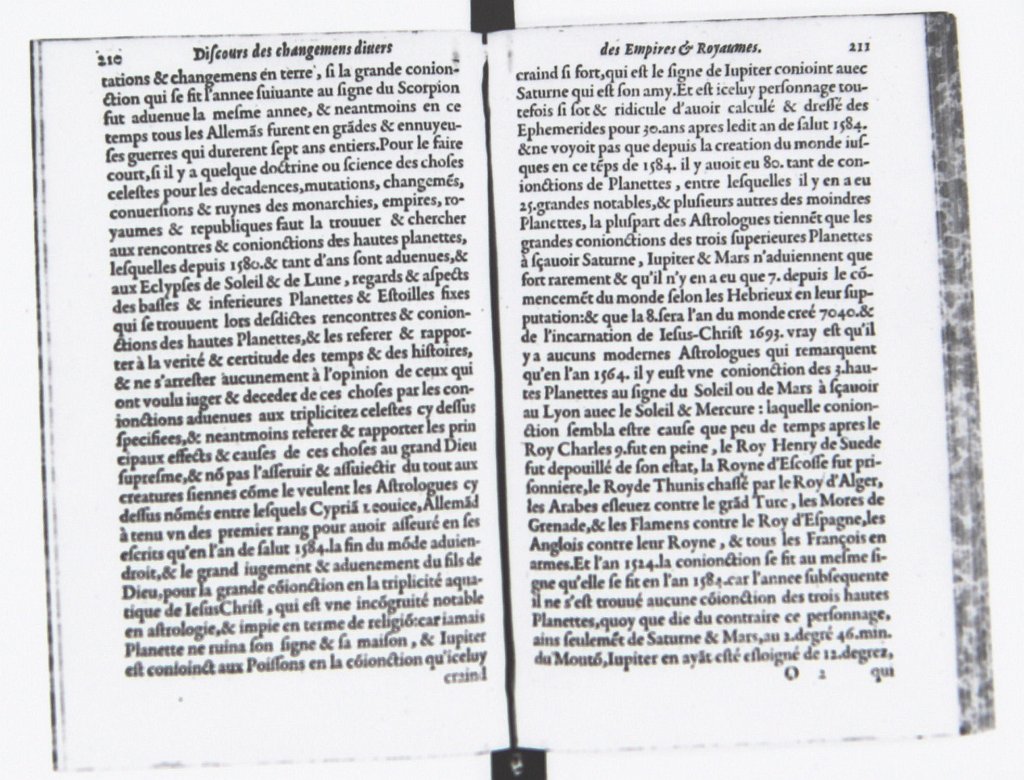 210 Diſcours des changemens diuers
tations & changemens en terre, ſi la grande conion-
ction qui ſe fit l'annee ſuiuante au ſigne du Scorpion
fut aduenue la meſme annee, & neantmoins en ce
temps tous les Allemãs furent en grãdes & ennuyeu-
ſes guerres qui durerent ſept ans entiers.Pour le faire
court,ſi il y a quelque doctrine ou ſcience des choſes
celeſtes pour les decadences,mutations, changemés,
conuerſions & ruynes des monarchies, empires, ro-
yaumes & republiques faut la trouuer & chercher
aux rencontres & conionctions des hautes planettes,
leſquelles depuis 1580.& tant d'ans ſont aduenues,&
aux Eclypſes de Soleil & de Lune, regards & aſpects
des baſſes & inferieures Planettes & Eſtoilles fixes
qui ſe trouuent lors deſdictes rencontres & conion-
ctions des hautes Planettes,& les referer & rappor-
ter à la verité & certitude des temps & des hiſtoires,
& ne s'arreſter aucunement à l'opinion de ceux qui
ont voulu iuger & deceder de ces choſes par les con-
ionctions aduenues aux triplicitez celeſtes cy deſſus
ſpecifiees,& neantmoins referer & rapporter les prin
cipaux effects & cauſes de ces choſes au grand Dieu
ſupreſme,& nõ pas l'aſſeruir & aſſuiectir du tout aux
creatures ſiennes cõme le veulent les Aſtrologues cy
deſſus nõmés entre leſquels Cypriã Leouice,Allemãd
à tenu vn des premier rang pour auoir aſſeuré en ſes
eſcrits qu'en l'an de ſalut 1584.la fin du mõde aduien-
droit,& le grand iugement & aduenement du fils de
Dieu,pour la grande cõionction en la triplicité aqua-
tique de IeſusChriſt, qui eſt vne incõgruité notable
en aſtrologie,& impie en terme de religiõ:car iamais
Planette ne ruina ſon ſigne & ſa maiſon, & Iupiter
eſt conioinct aux Poiſſons en la cõionction qu'iceluy
craind
des Empires & Royaumes. 211
craind ſi fort,qui eſt le ſigne de Iupiter conioint auec
Saturne qui eſt ſon amy.Et eſt iceluy perſonnage tou-
tefois ſi ſot & ridicule d'auoir calculé & dreſſé des
Ephemerides pour 30.ans apres ledit an de ſalut 1584.
&ne voyoit pas que depuis la creation du monde iuſ-
ques en ce tẽps de 1584. il y auoit eu 80. tant de con-
ionctions de Planettes, entre leſquelles il y en a eu
25.grandes notables,& pluſieurs autres des moindres
Planettes, la pluſpart des Aſtrologues tiennẽt que les
grandes conionctions des trois ſuperieures Planettes
à ſçauoir Saturne, Iupiter & Mars n'aduiennent que
fort rarement & qu'il n'y en a eu que 7. depuis le cõ-
mencemẽt du monde ſelon les Hebrieux en leur ſup-
putation:& que la 8.ſera l'an du monde creé 7040.&
de l'incarnation de Ieſus-Chriſt 1693. vray eſt qu'il
y a aucuns modernes Aſtrologues qui remarquent
qu'en l'an 1564. il y euſt vne conionction des 3.hau-
tes Planettes au ſigne du Soleil ou de Mars à ſçauoir
au Lyon auec le Soleil & Mercure : laquelle conion-
ction ſembla eſtre cauſe que peu de temps apres le
Roy Charles 9.fut en peine, le Roy Henry de Suede
fut depouillé de ſon eſtat, la Royne d'Eſcoſſe fut pri-
ſonniere,le Royde Thunis chaſſé par le Roy d'Alger,
les Arabes eſleuez contre le grãd Turc, les Mores de
Grenade,& les Flamens contre le Roy d'Eſpagne,les
Anglois contre leur Royne, & tous les François en
armes.Et l'an 1524.la conionction ſe fit au meſme ſi-
gne qu'elle ſe fit en l'an 1584.car l'annee ſubſequente
il ne s'eſt trouué aucune cõionction des trois hautes
Planettes,quoy que die du contraire ce perſonnage,
ains ſeulemẽt de Saturne & Mars,au 2.degré 46.min.
du Moutõ,Iupiter en ayãt eſté eſloigné de 12.degrez,
O 2 qui